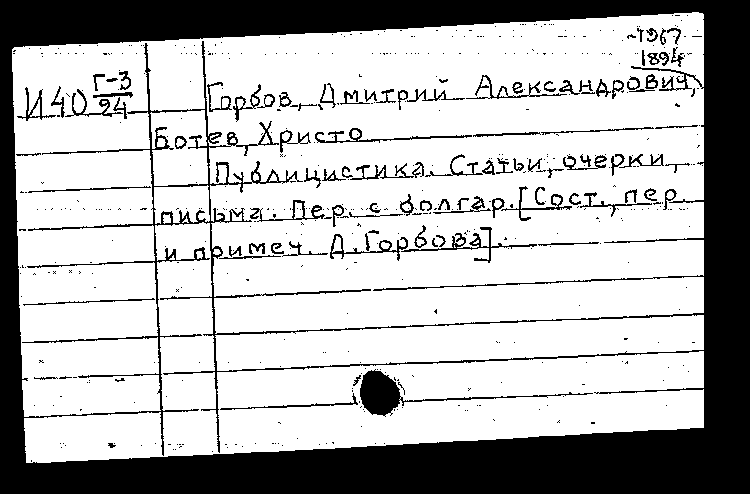 -1967
1894
И40 Г-3/24 Горбов, Дмитрий Александрович,
Ботев, Христо
Публицистика. Статьи, очерки,
письма. Пер. с болгар. [Сост., пер.
и примеч. Д. Горбова].